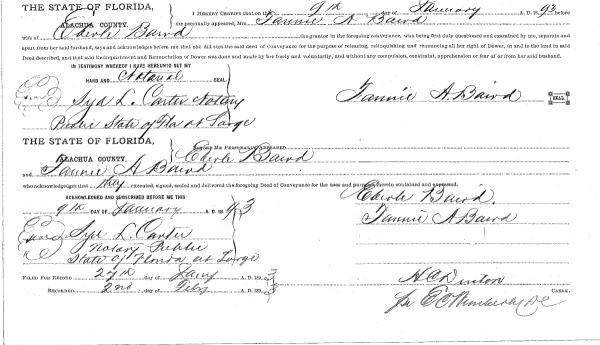 THE STATE OF FLORIDA,
ALACHUA COUNTY.
I HEREBY CERTIFY that on the 9th day of January 93 before
me personally appeared, Mrs Fannie A Baird
wife of Eberle Baird the grantor in the foregoing conveyance, who being first duly questioned and examined by me, separate and
apart from her said husband, says and acknowledges before me that she did sign the said deed of Conveyance for the purpose of releasing, relinquishing and renouncing all her right of Dower, in and to the land in said
Deed described, and that said Relinquishment and Renunciation of Dower was done and made by her freely and voluntarily, and without any compulsion, constraint, apprehension or fear of or from her said husband.
IN TESTIMONY WHEREOF I HAVE HEREUNTO SET MY
HAND AND Notarial SEAL
Syd L. Carter Notary
Public State of Fla at Large
Fannie A. Baird
SEAL
THE STATE OF FLORIDA,
ALACHUA COUNTY.
BEFORE ME PERSONALLY APPEARED Eberle Baird
and Fannie A Baird
who acknowledges that they executed, signed, sealed and delivered the foregoing Deed of Conveyance for the uses and purposes therein contained and expressed.
ACKNOWLEDGED AND SUBSCRIBED BEFORE ME THIS
9th DAY OF January A. D. 1893
Eberle Baird.
Fannie A Baird
Syd L Carter
Notary Public
State of Florida at Large
FILED FOR RECORD 27th day of Jany A.D. 1893
RECORDED 2nd day of Feby A.D. 1893
H C Denton
CLERK.
per E C